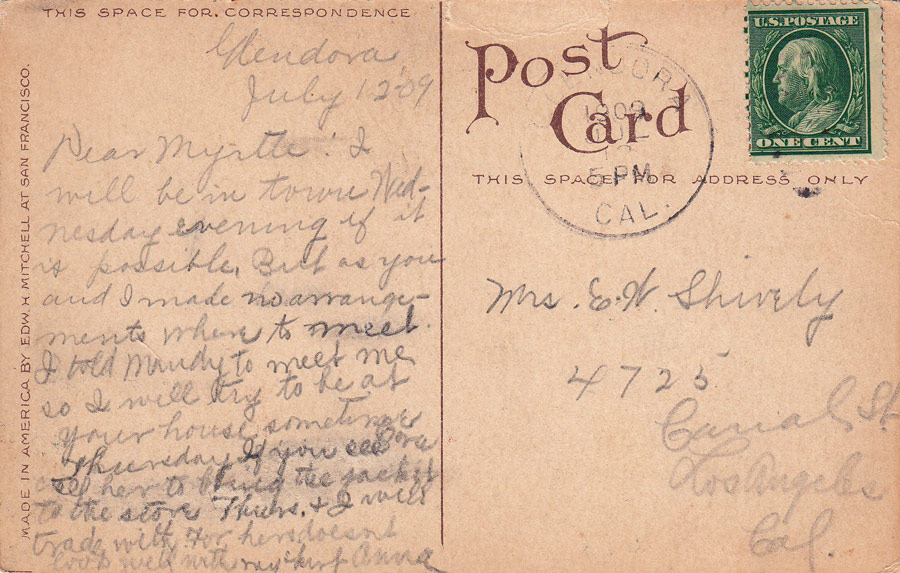 THIS SPACE FOR CORRESPONDENCE
Glendora
July 12 09
Dear Myrtle: I
will be in town Wed-
nesday evening if it
is possible. But as you
and I made no arrange-
ments where to meet.
I told Mandy to meet me
so I will try to be at
your house sometime
Thursday If you see Dora
tell her to bring the jacket
to the store Thurs. & I will
trade with her hers doesnt
look well with my skirt Anna
MADE IN AMERICA BY EDW. H. MITCHELL AT SAN FRANCISCO.
Post
Card
THIS SPACE FOR ADDRESS ONLY
U.S. POSTAGE
ONE CENT
1909
JUL
5 PM
CAL.
Mrs. E. W. Shively
4725
Canal St
Los Angeles
Cal.